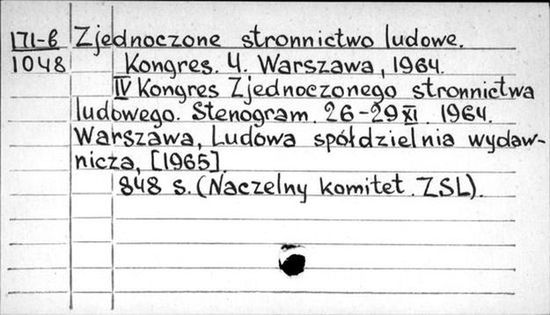 171-6 Zjednoczone stronnictwo ludowe.
1048 Kongres. 4. Warszawa, 1964.
IV Kongres Zjednoczonego stronnictwa
ludowego. Stenogram. 26-29 XI 1964.
Warszawa, Ludowa spółdzielnia wydaw-
nicza, [1965].
848 s. (Naczelny komitet ZSL).